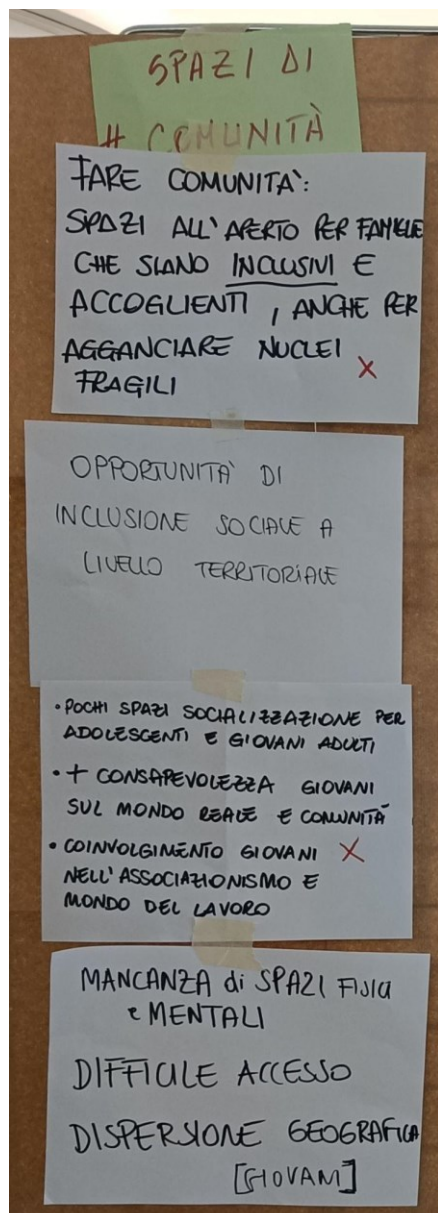 SPAZI DI
# COMUNITÀ
FARE COMUNITA':
SPAZI ALL'APERTO PER FAMIGLIE
CHE SIANO INCLUSIVI E
ACCOGLIENTI, ANCHE PER
AGGANCIARE NUCLEI
FRAGILI X
OPPORTUNITA' DI
INCLUSIONE SOCIALE A
LIVELLO TERRITORIALE
• POCHI SPAZI SOCIALIZZAZIONE PER
ADOLESCENTI E GIOVANI ADULTI
• + CONSAPEVOLEZZA GIOVANI
SUL MONDO REALE E COMUNITÀ
• COINVOLGIMENTO GIOVANI X
NELL'ASSOCIAZIONISMO E
MONDO DEL LAVORO
MANCANZA di SPAZI FISICI
e MENTALI
DIFFICILE ACCESSO
DISPERSIONE GEOGRAFICA
[GIOVANI]